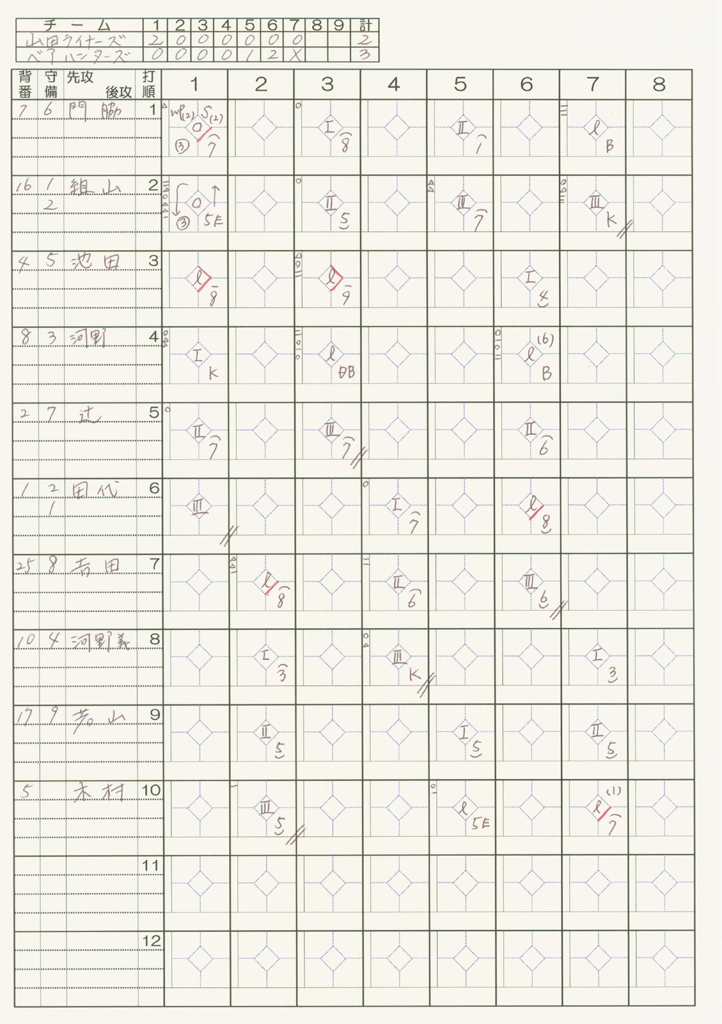 チーム 1 2 3 4 5 6 7 8 9 計
山田ライナーズ 2 0 0 0 0 0 0 2
ベアハンターズ 0 0 0 0 1 2 X 3
背番 守備 先攻 後攻 打順 1 2 3 4 5 6 7 8
7 6 門脇 1 WP(2) S(2) O ③ 7 I 8 II 1 l B
16 1 組山 2 O ③ 5E II 5 III 7 III K
2
4 5 池田 3 l 8 l 9 I 4
8 3 河野 4 I K l DB l (6) B
2 7 辻 5 II 7 III 7 II 6
1 2 田代 6 III I 7 l 8
1
25 8 吉田 7 l 8 II 6 III 6
10 4 河野義 8 I 3 III K I 3
17 9 若山 9 II 5 I 5 II 5
5 木村 10 III 5 l 5E l (1) 7
11
12